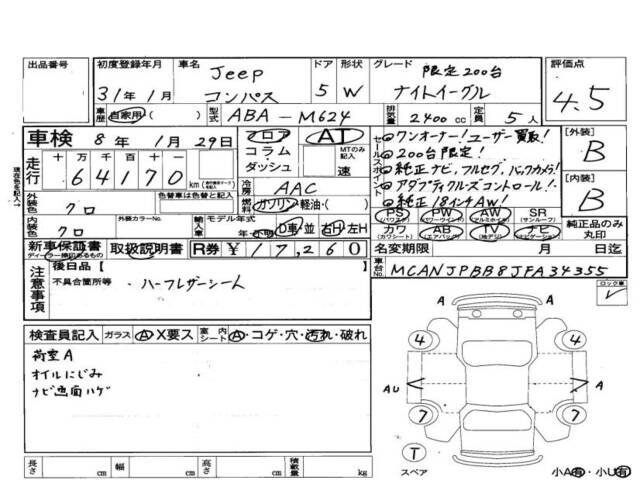 出品番号 初度登録年月 車名 ドア 形状 グレード 評価点
31年1月 Jeep コンパス 5 W 限定200台 ナイトイーグル 4.5
車歴 自家用・( ) 型式 ABA-M624 排気量 2400cc 定員 5人
車検 8年 1月 29日 フロア AT
コラム・ダッシュ MTのみ記入 速
走行 十 万 千 百 十 一
64170 km
外装色 クロ 色替車は色替と記入
冷房 AAC
燃料 ガソリン・軽油・( )
内装色 クロ 外装カラーNo. 輸入車 モデル年式 年 不明 D車・並 右H・左H
セールスポイント
◎ワンオーナー!ユーザー買取!
◎200台限定!
◎純正ナビ,フルセグ,バックカメラ!
◎アダプティクルズコントロール!
◎純正18インチAW!
[外装] B
[内装] B
PS (パワステ) PW (パワーウィンドウ) AW (アルミホイール) SR (サンルーフ)
カワ (カワシート) AB (エアバック) TV (地デジ) ナビ (ナビゲーション)
純正品のみ丸印
新車保証書 ディーラー捺印あるもの 取扱説明書 R券 ¥17,260
名変期限 月 日迄
車台No. MCANJPBB8JFA34355
注意事項 後日品【 】
不具合箇所等 ・ハーフレザーシート
ロック車
検査員記入 ガラス A・X要ス 室内シート A・コゲ・穴・汚れ・破れ
荷室A
オイルにじみ
ナビ画面ハゲ
A A
4 4
AU A
7 7
T
スペア
長さ cm 幅 cm 高さ cm 積載量 kg
小A有・小U有
現在色を記入